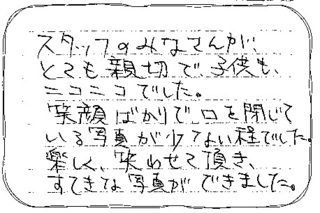 スタッフのみなさんが、
とても親切で、子供も、
ニコニコでした。
笑顔ばかりで口を閉じて
いる写真が少てない程でした。
楽しく、笑わせて頂き、
すてきな写真ができました。